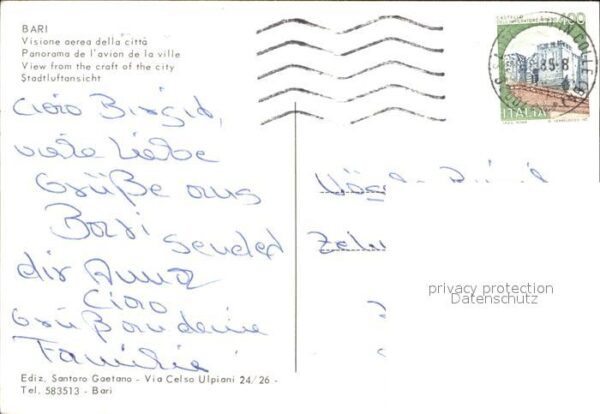 BARI
Visione aerea della città
Panorama de l'avion de la ville
View from the craft of the city
Stadtluftansicht
Ciao Birgit,
viele liebe
Grüße aus
Bari sendet
dir Anna
Ciao
Grüß an deine
Familie
Ediz. Santoro Gaetano - Via Celso Ulpiani 24/26 -
Tel. 583513 - Bari
CASTELLO
400
ITALIA
privacy protection
Datenschutz